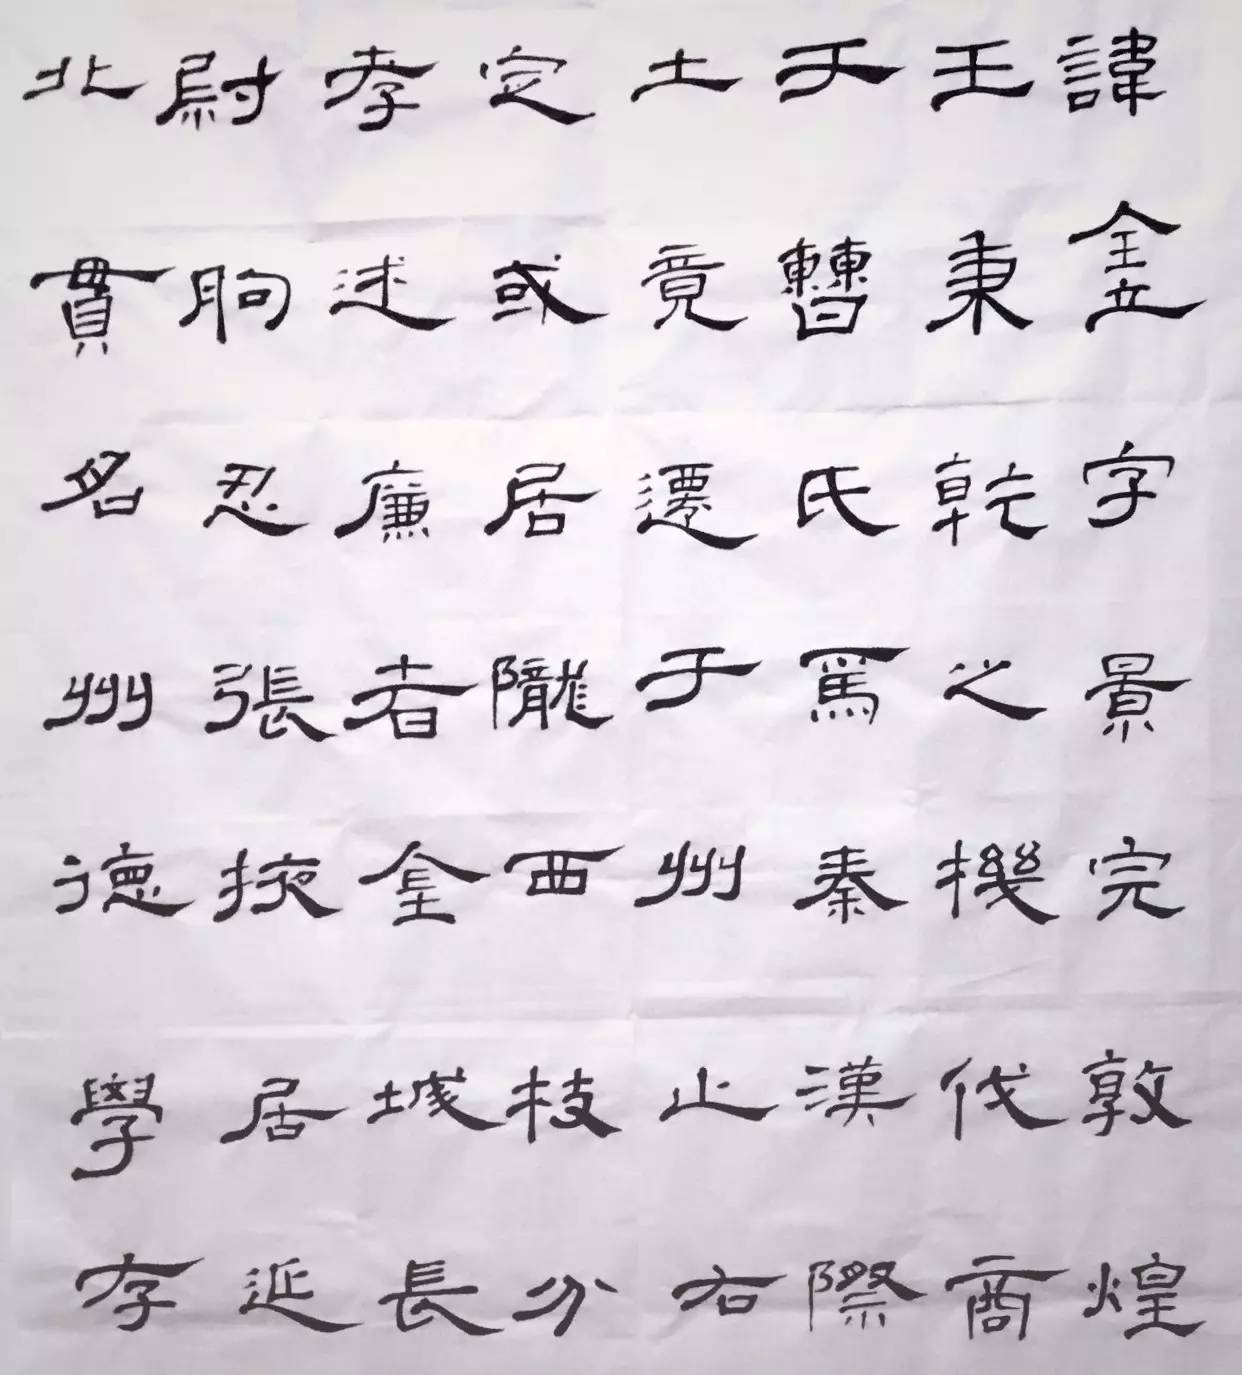 諱全字景完敦煌
王秉乾之機伐商
于曹氏焉秦漢際
土竟遷于州止右
定或居隴西枝分
孝述廉者金城長
尉朐忍張掖居延
北貫名州德學存